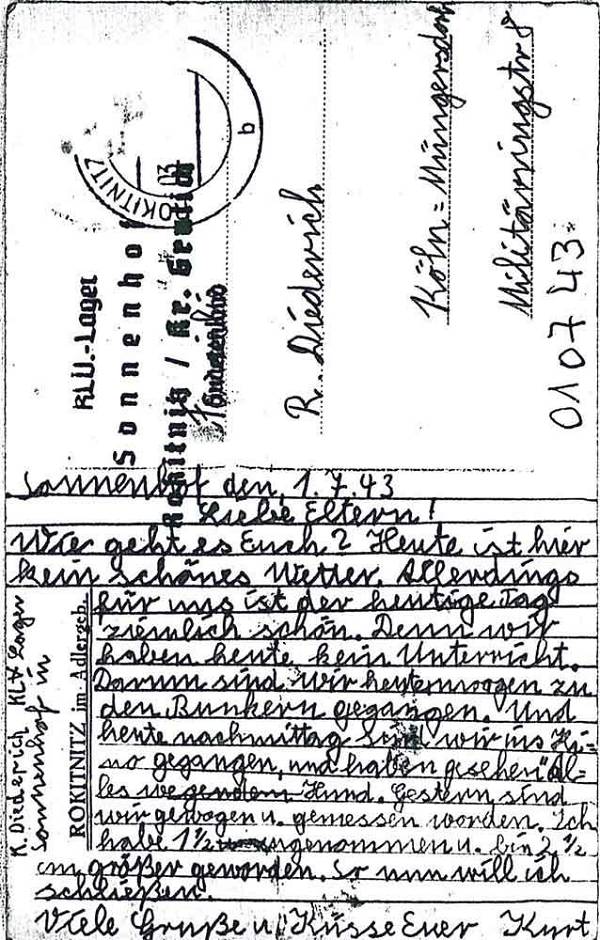 KLV.-Lager
Sonnenhof
Rokitnitz / Kr. Grulich
Sudetenland
ROKITNITZ
b
R. Diederich
Köln = Müngersdorf
Militärringstr 8
01 07 43
Sonnenhof den, 1.7.43
Liebe Eltern!
Wie geht es Euch? Heute ist hier
kein schönes Wetter. Allerdings
für uns ist der heutige Tag
ziemlich schön. Denn wir
haben heute kein Unterricht.
Darum sind wir heutemorgen zu
den Bunkern gegangen. Und
heute nachmittag sind wir ins Ki=
no gegangen, und haben gesehen "Al=
les we Hund. Gestern sind
wir gewogen u. gemessen worden. Ich
habe 1½ angenommen u. bin 2½
cm größer geworden. So nun will ich
schließen.
Viele Grüße u. Küsse Euer Kurt
K. Diederich KLV Lager
Sonnenhof in
ROKITNITZ im Adlergeb.